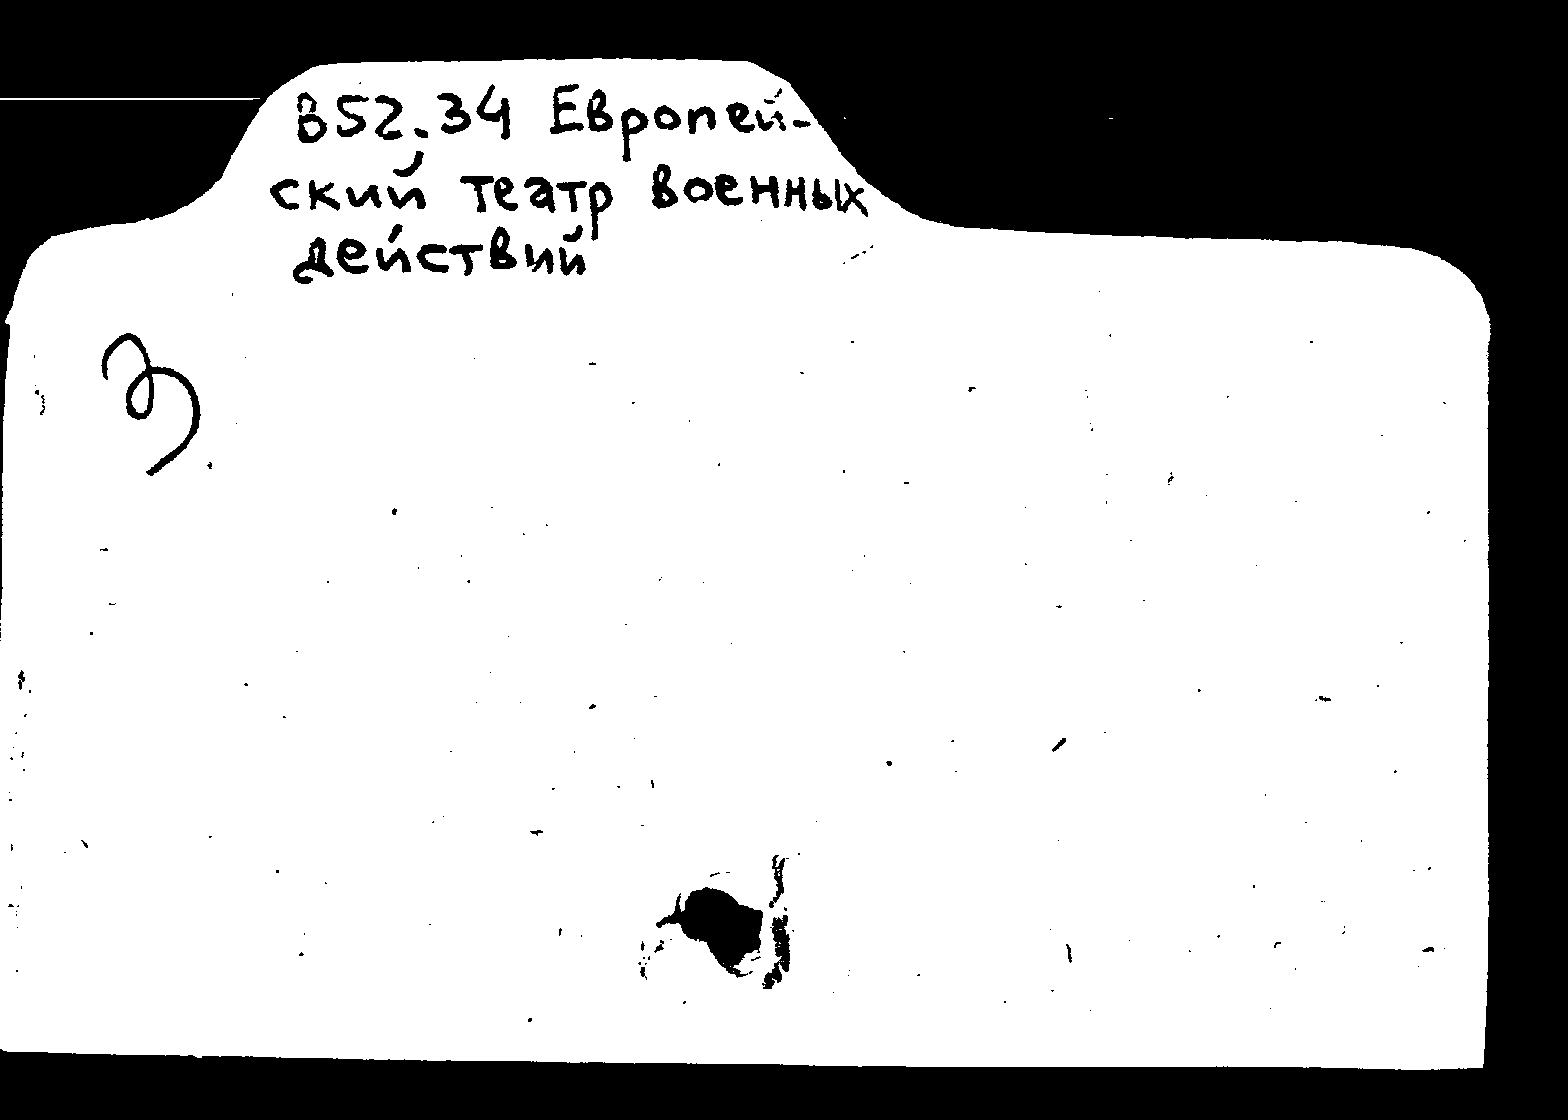 В52.34 Европей-
ский театр военных
действий
З